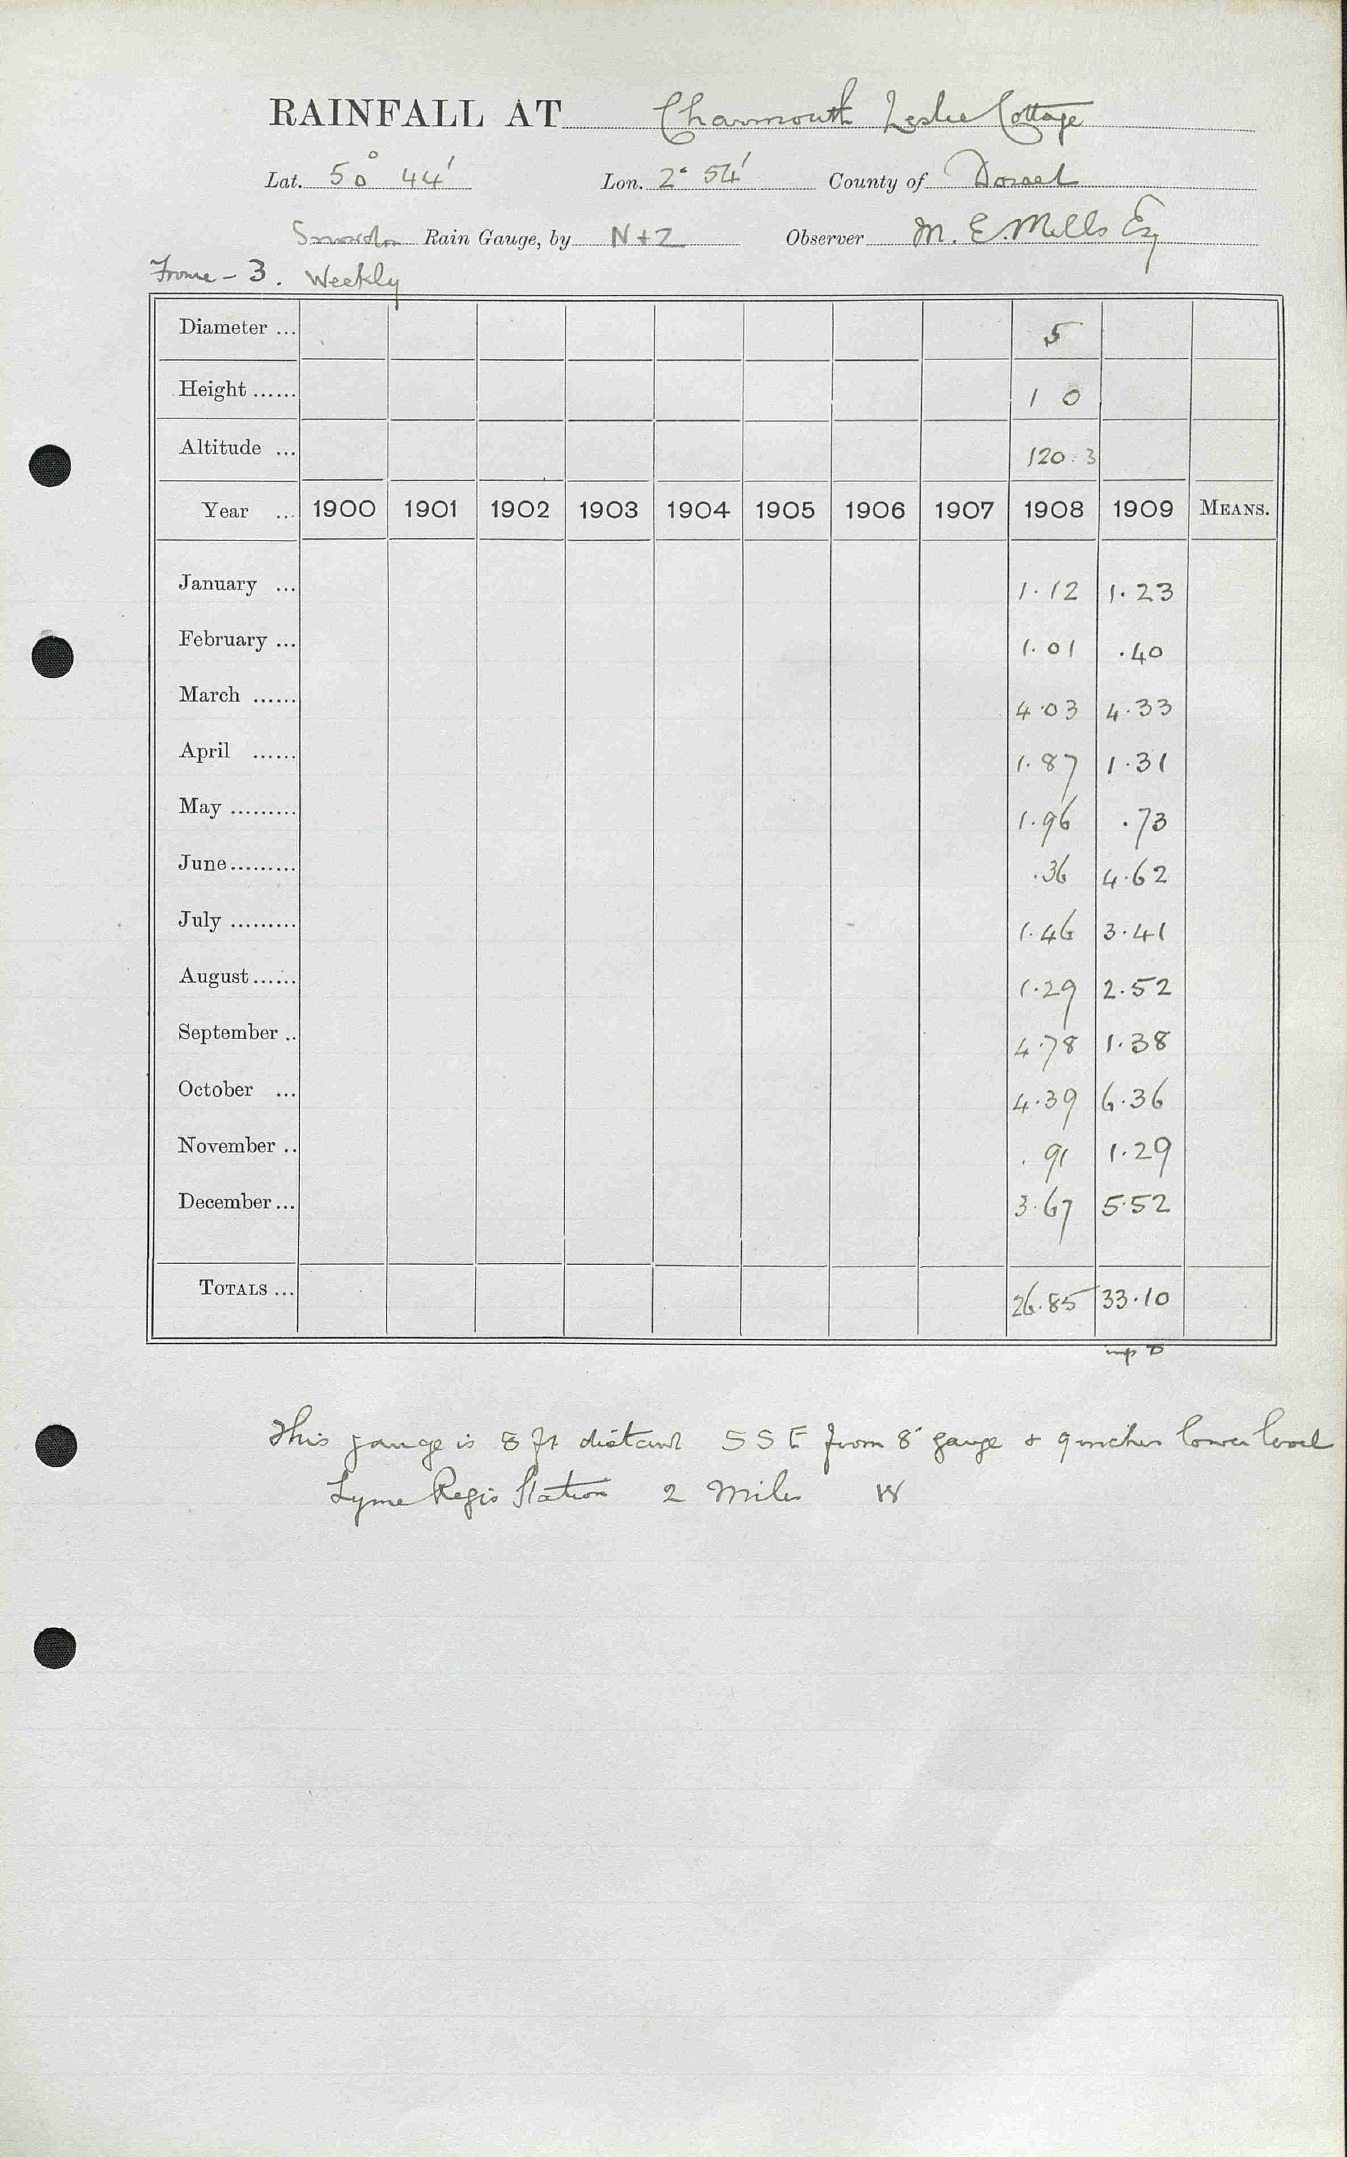 RAINFALL AT Charmouth Leslie Cottage
Lat. 50° 44' Lon. 2° 54' County of Dorset
Snowdon Rain Gauge, by N + Z Observer M. E. Mills Esq
Frome - 3. Weekly
Diameter ... 5
Height ...... 1 0
Altitude ... 120.3
Year ... 1900 1901 1902 1903 1904 1905 1906 1907 1908 1909 MEANS.
January ... 1.12 1.23
February ... 1.01 .40
March ...... 4.03 4.33
April ...... 1.87 1.31
May ......... 1.96 .73
June ......... .36 4.62
July ......... 1.46 3.41
August ...... 1.29 2.52
September .. 4.78 1.38
October ... 4.39 6.36
November .. .91 1.29
December ... 3.67 5.52
TOTALS ... 26.85 33.10
This gauge is 8 ft distant SSE from 8" gauge + 9 inches lower level
Lyme Regis Station 2 Miles W